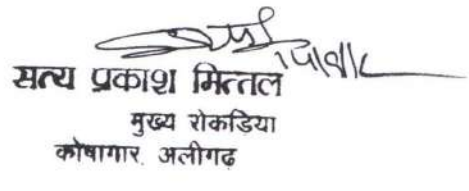 सत्य प्रकाश मित्तल
मुख्य रोकडिया
कोषागार, अलीगढ़